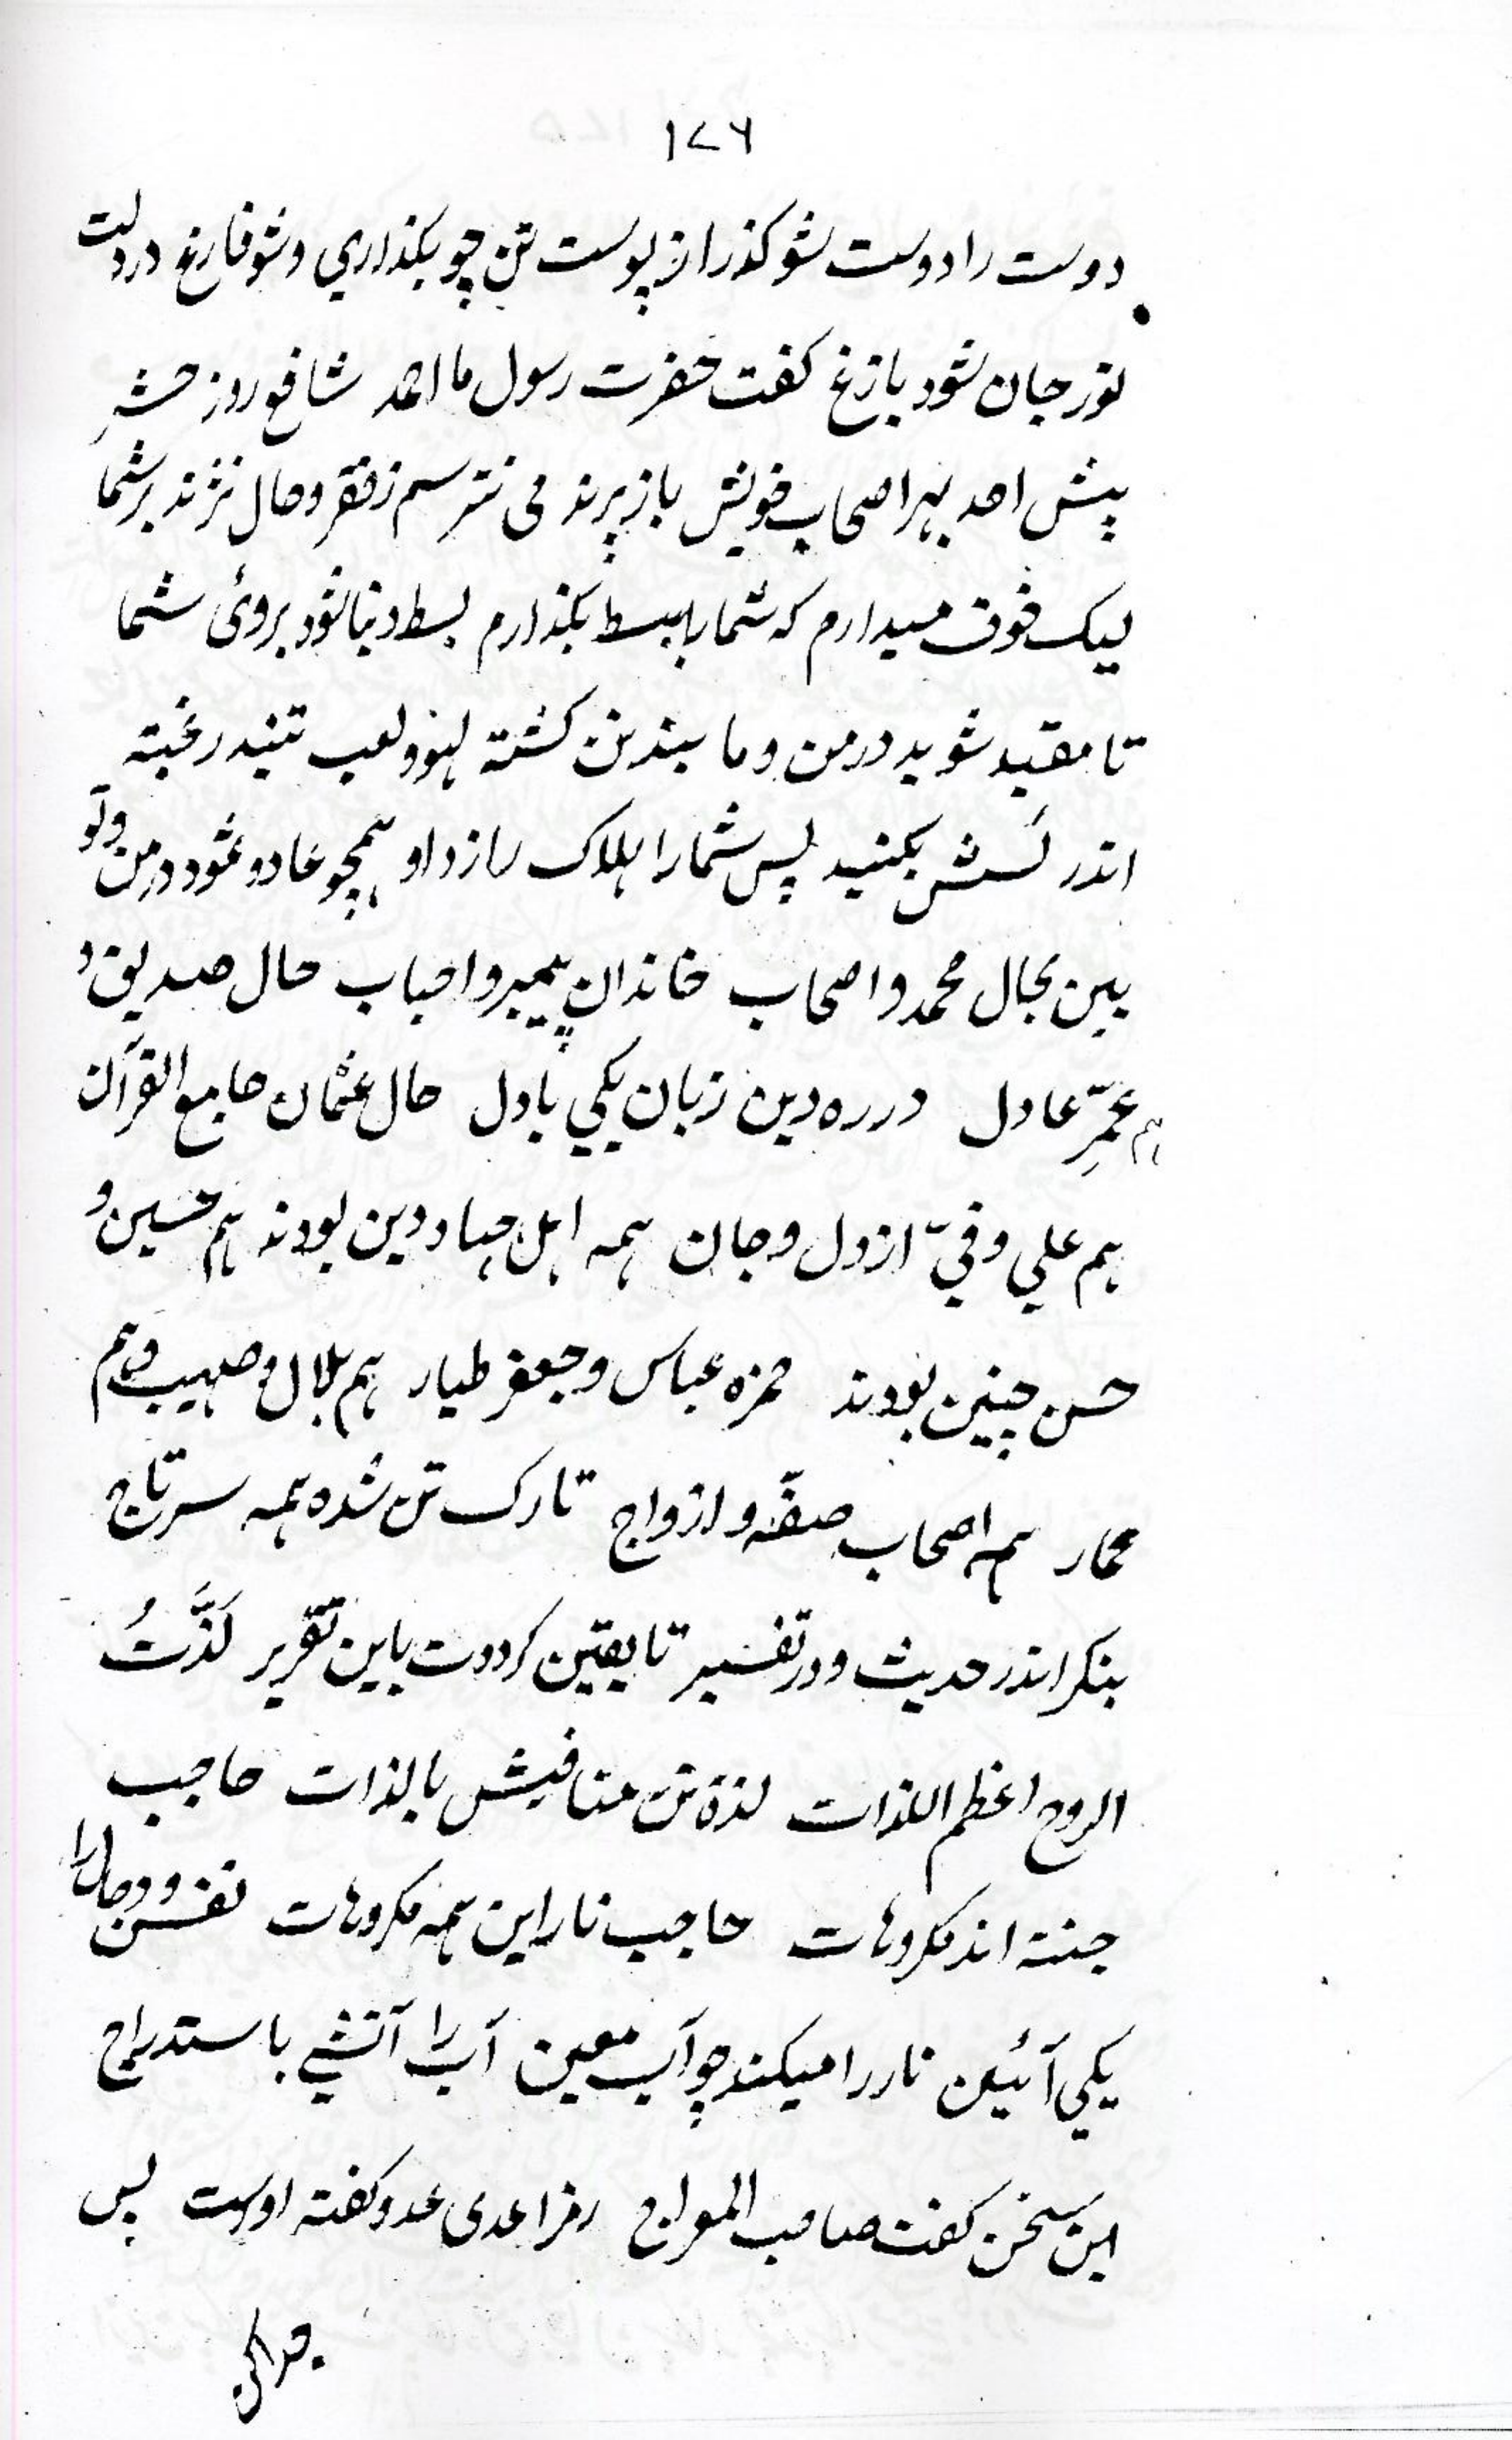 ۱۷۶
دوست را دوست شو کذر از پوست تن چو بکذاري و شو فارغ در دلت
نور جان شود بازغ کفت حضرت رسول ما احمد شافع روز حشر
پیش احد بهر اصحاب خویش باز پرند می نترسم ز فقر و حال نژند بر شما
لیک خوف میدارم که شما با بسط بکذارم بسط دنیا شود بروئ شما
تا مقید شوید در من و ما بند تن کشته لهو و لعب تنید رغبة
اندر کنشش بکنید پس شما را هلاک سازد او همچو عاد و ثمود در من و تو
بین بحال محمد و اصحاب خاندان پیمبر و احباب حال صدیق و
هم عمرِّ عادل در ره دین زبان یکي با دل حال عثمان جامع القرآن
هم علي وفيّ از دل و جان همه اهل جهاد دین بودند هم حسین و
حسن چنین بودند حمزه عباس و جعفر طیار هم بلال و صهیب و هم
عمار هم اصحاب صفّه و ازواج تارک تن شده همه سر تاج
بنکر اندر حدیث و در تفسیر تا یقین کردوت باین تقریر لَذَّتُ
الروح اعظم اللذات لذة تن منافیش بالذات حاجب
جنتة اند مکروهات حاجب نار این همه مکروهات نفس و دجال را
یکي آئین نار را میکند چو آب معین آب را آتشي باستدراج
این سخن کفت صاحب المعراج رمز اعدی عدو کفته اوست پس